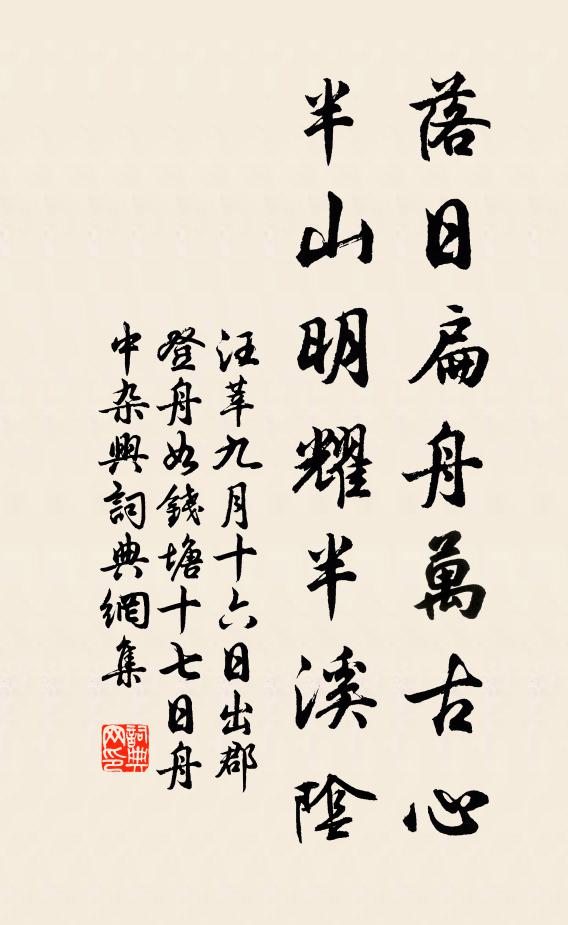 落日扁舟萬古心
半山明耀半溪陰
汪莘九月十六日出郡
登舟如錢塘十七日舟
中杂興詞典網集
詞典
网印